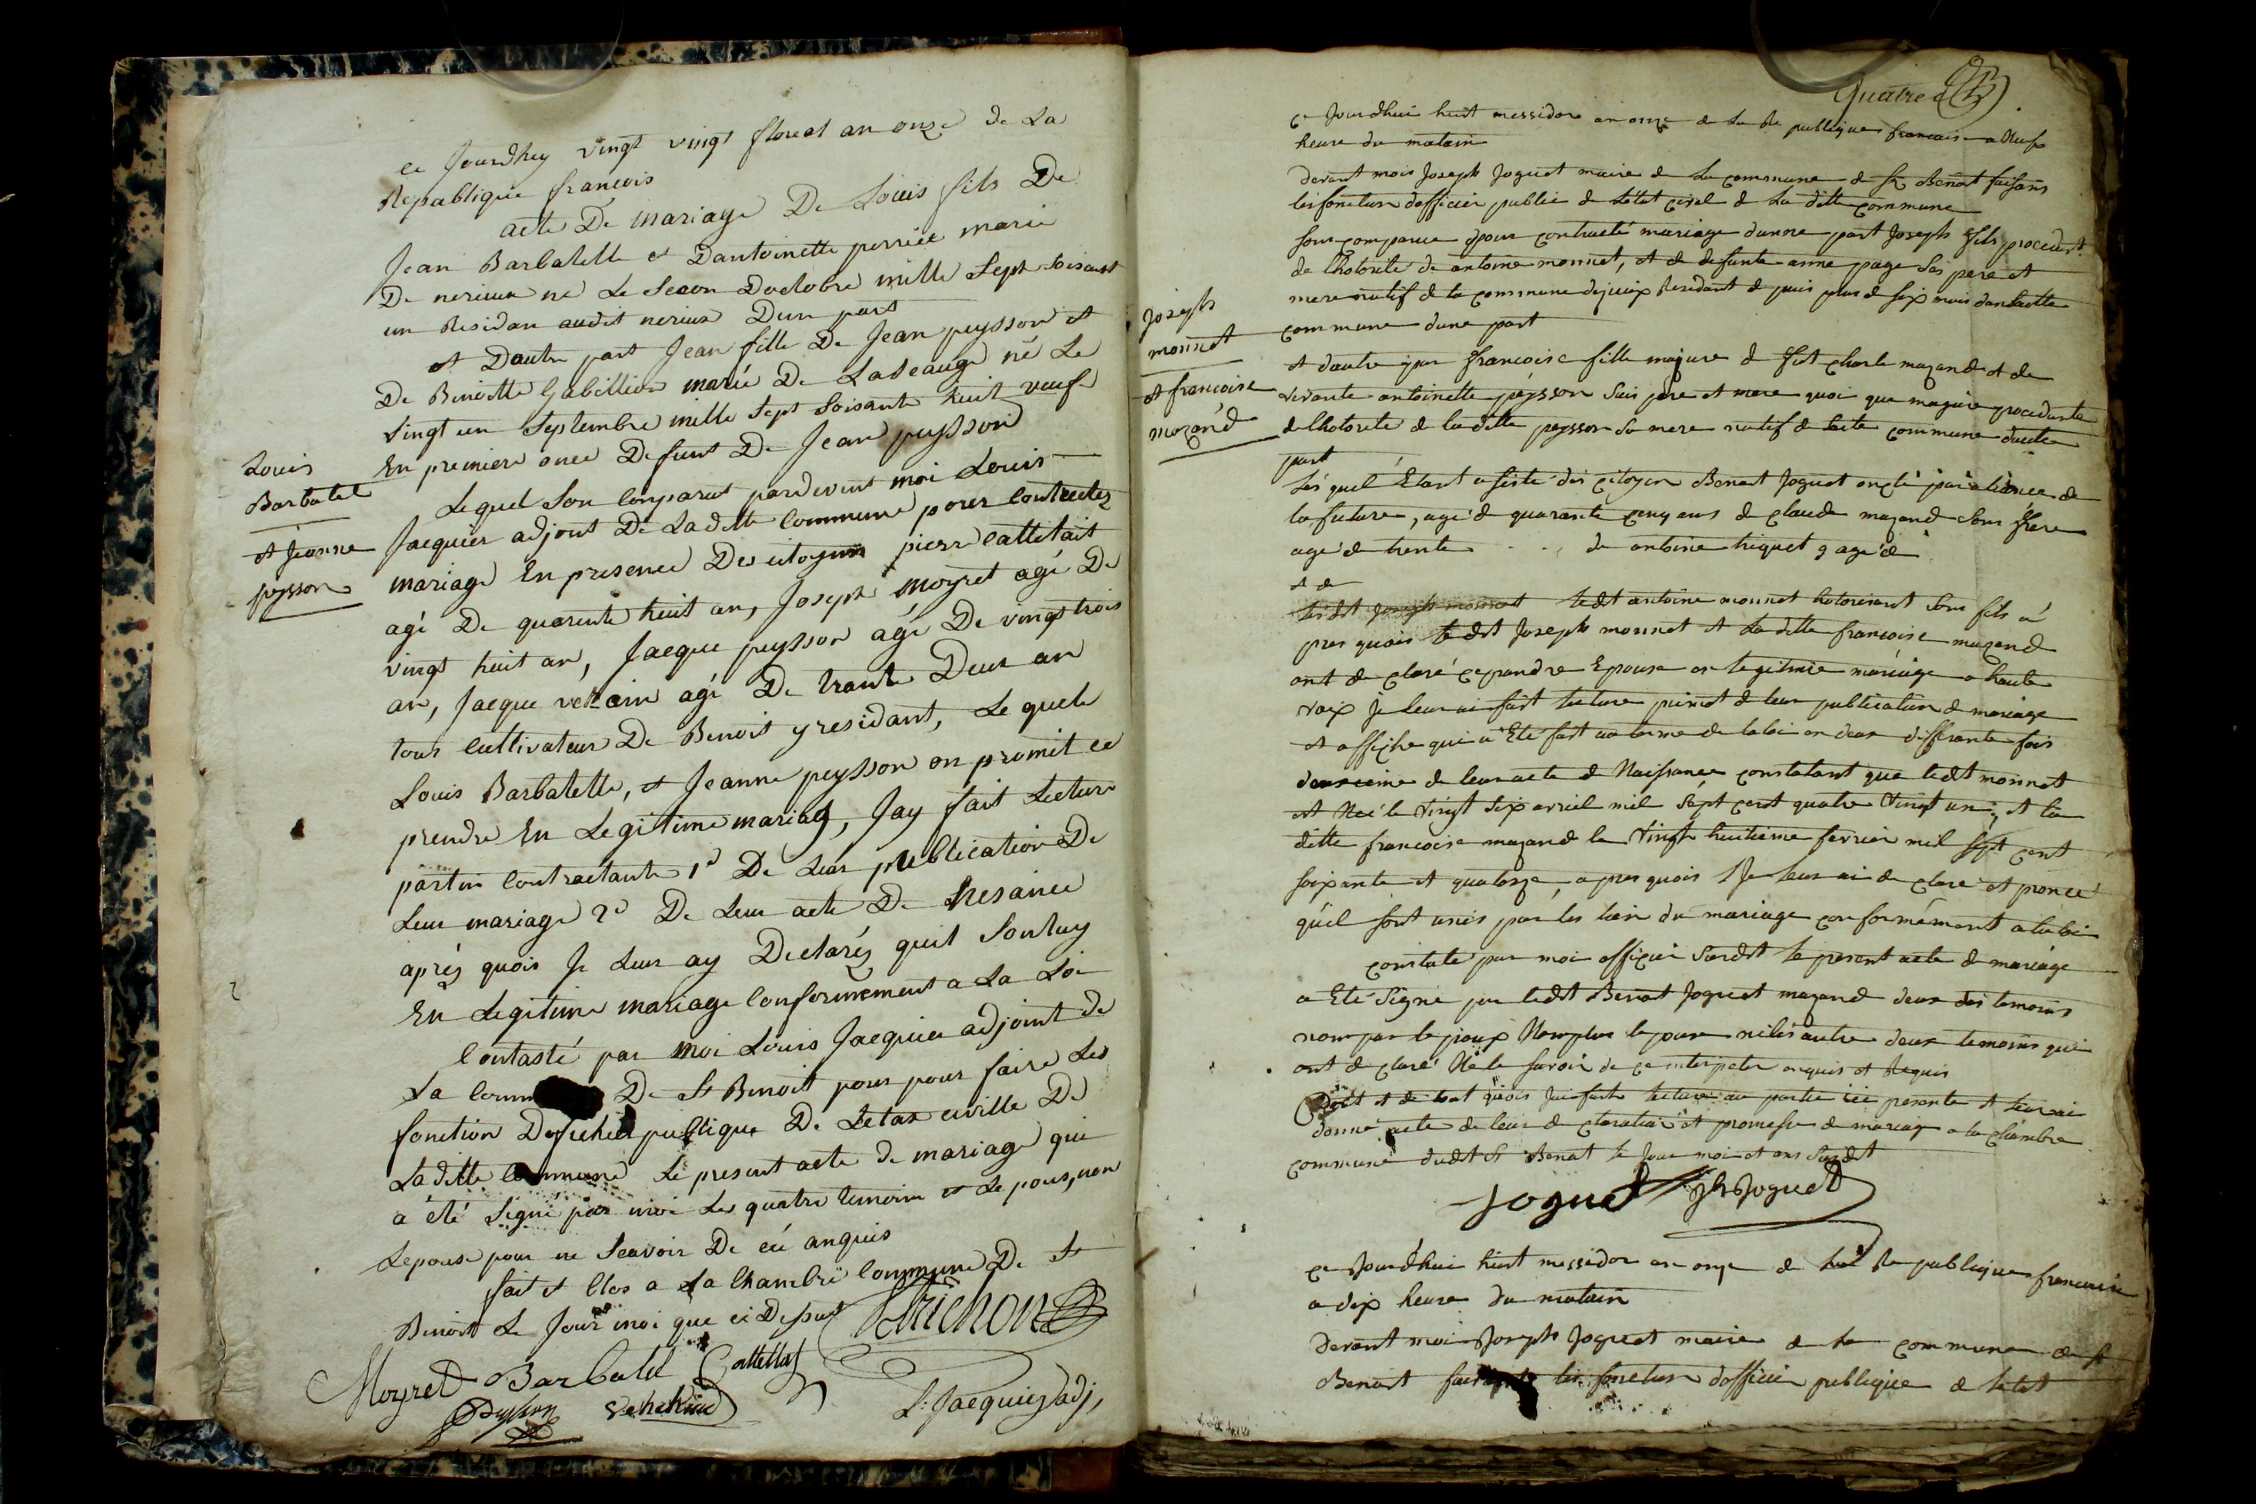 ce Jourdhuy vingt vingt floreal an onze de La
Republique francois
acte De mariage De Louis fils De
Jean Barbatelle et Dantoinette perriée marie
De nerieux né Le Secon Doctobre mille Sept Soisant
un Residan audit nerieux Dun part
et Dautre part Jean fille De Jean peysson et
De Benoitte Gabillion marié De né Le
vingt un Septembre mille Sept Soisante huit veufe
En premiere once Defunt De Jean peysson
Louis
Barbatel
et Jeanne
peysson
Lequel Son Conparut pardevent moi Louis
Jacquier adjoint De Ladite Commune pour Contractez
mariage En presence Des citoyens pierre Cattelait
agé De quarente huit an, Joseph Moyret agé De
vingt huit an, Jacque peysson agé De vingt trois
an, Jacque agé De trante Deux an
tous Cultivateur De Benoit y residant, Le quele
Louis Barbatelle, et Jeanne peysson on promit ce
prendre En Legitime mariag, Jay fait Lecture
partin Contractante 1º De Leur publication De
Leur mariage 2º De Leur acte De Nesance
aprés quois Je Leur ay Declarés quil Sontuy
En Legitime mariage Conformement a La Loi
Contasté par moi Louis Jacquier adjoint de
La Comm De St Benoit pour pour faire Les
fonction publique De Letat civille De
La ditte Commune Le present acte de mariage qui
a été Signé par moi Les quatre temoin et Lepous, non
Lepouse pour ne Scavoir De cé anquis
fait et Clos a La Chambre Commune De St
Benoit Le Jour moi que ci Dessus
Moyret Barbatel Cattellat
Peysson
L: Jacquier adj,
Quatre
ce Jourdhui huit messidor an onze de La Re publique francaise a Neuf
heure du matain
devant mois Joseph Joguet maire de La commune de St Benoit faisans
les fonction dofficier public de Létat civil de La ditte commune
Son comparue pour contracté mariage dunne part Joseph fils procedent
de Lhotorité de antoine monnet, et de defunte anne page Ses pere et
mere natif de la commune Residant de puis plus de six mois dans cette
commune dune part
Joseph
monnet
et francoise
mazand
et dautre par francoise fille majure de fut charle mazand et de
vivante antoinette peysson Sais pere et mere quoi que majure procedante
de Lhotorité de la ditte peysson Sa mere natif de cette commune dautre
part
Les quel Etant a sisté des citoyen Benoit Joguet oncle par aliance de
la future, agé de quarante cinq ans de claude mazand Son frere
agé de trente . . . . de antoine triquet agé de
et de
ledt Joseph monnet ledt antoine monnet hotorisant Son fils a
pres quois ledt Joseph monnet et La ditte francoise mazand
ont de claré ce prandre Epouse en legitimie mariage a haute
voix Je leur ai fait lecture primot de leur publication de mariage
et affiche qui a Eté fait au terme de la loi en deux differante fois
deuxcieme de leur acte de Naissance constatant que ledt monnet
est Neé le vingt six avril mil sept cent quatre vingt un, et la
ditte francoise mazand le vingt huitieme fevrier mil sept cent
soixante et quatorze, a pres quois Je leur ai de claré et
quil sont unis par les lien du mariage conformément a la loi
constate par moi officier Susdt le present acte de mariage
a Eté Signé par ledt Benoit Joguet mazand deux des temoins
non par le poux Non plus le pouse ni les autre deux temoins qui
ont de claré Ne le savoir de ce interpeler enquis et Requis
et de tout quois Jai fait lecture au partie ici presente et leur ai
donné acte de leur de claration et promesse de mariage a la chambre
commune dudt St Benoit le Jour moi et ans Susdt
Joguet Jh Joguet
ce Jourdhui huit messidor an onze de La Re publique francaise
a dix heure du matain
devant moi Joseph Joguet maire de La commune de St
Benoit faisant les fonction dofficier publique de Létat